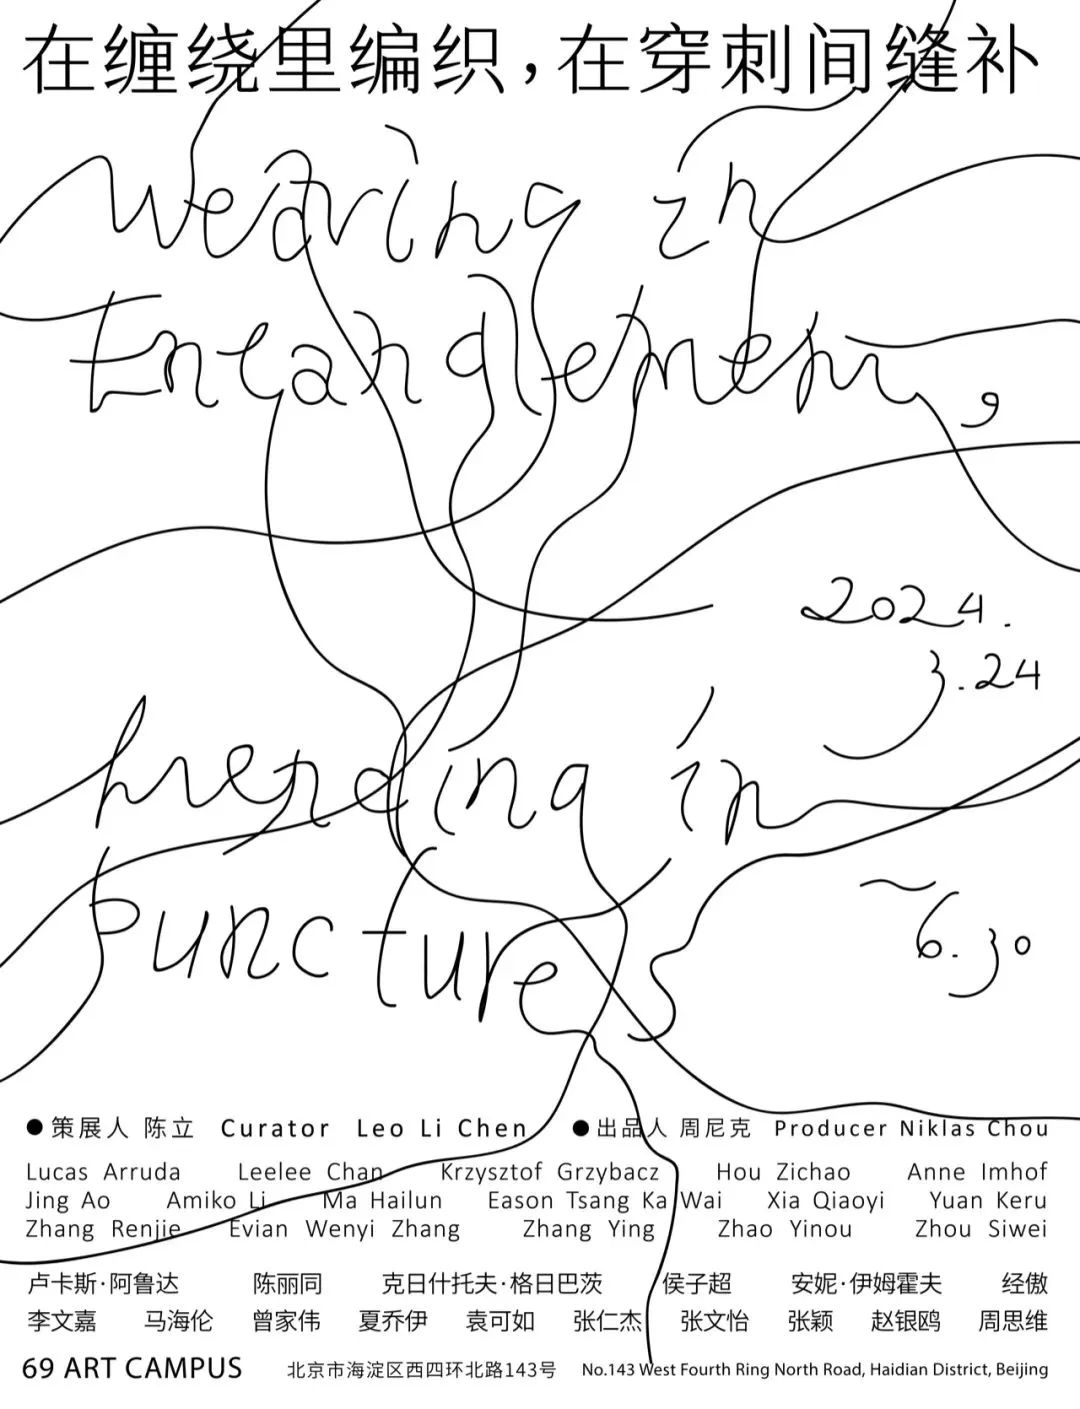 在缠绕里编织，在穿刺间缝补
Weaving in
Entanglement,
2024.
3.24
Mending in
~6.30
Punctures
●策展人 陈立 Curator Leo Li Chen ●出品人 周尼克 Producer Niklas Chou
Lucas Arruda Leelee Chan Krzysztof Grzybacz Hou Zichao Anne Imhof
Jing Ao Amiko Li Ma Hailun Eason Tsang Ka Wai Xia Qiaoyi Yuan Keru
Zhang Renjie Evian Wenyi Zhang Zhang Ying Zhao Yinou Zhou Siwei
卢卡斯·阿鲁达 陈丽同 克日什托夫·格日巴茨 侯子超 安妮·伊姆霍夫 经傲
李文嘉 马海伦 曾家伟 夏乔伊 袁可如 张仁杰 张文怡 张颖 赵银鸥 周思维
69 ART CAMPUS 北京市海淀区西四环北路143号 No.143 West Fourth Ring North Road, Haidian District, Beijing